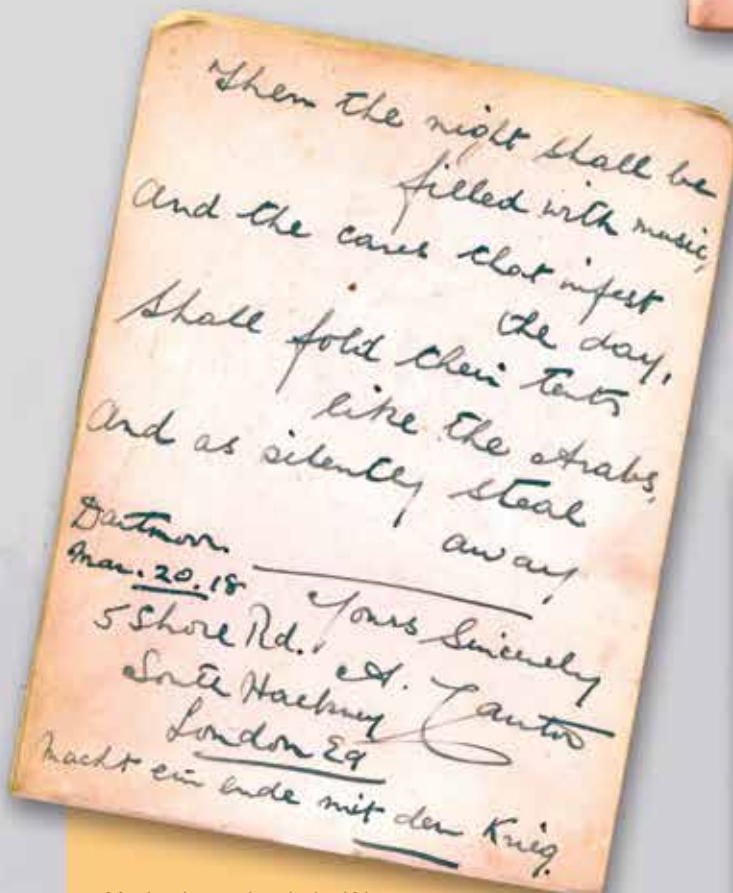 Then the night shall be
filled with music,
And the cares that infest
the day,
Shall fold their tents
like the Arabs,
And as silently steal
away
Dartmoor
Mar. 20. 18
Yours Sincerely
5 Shore Rd. A.
South Hackney
London E9
Macht ein ende mit den Krieg.